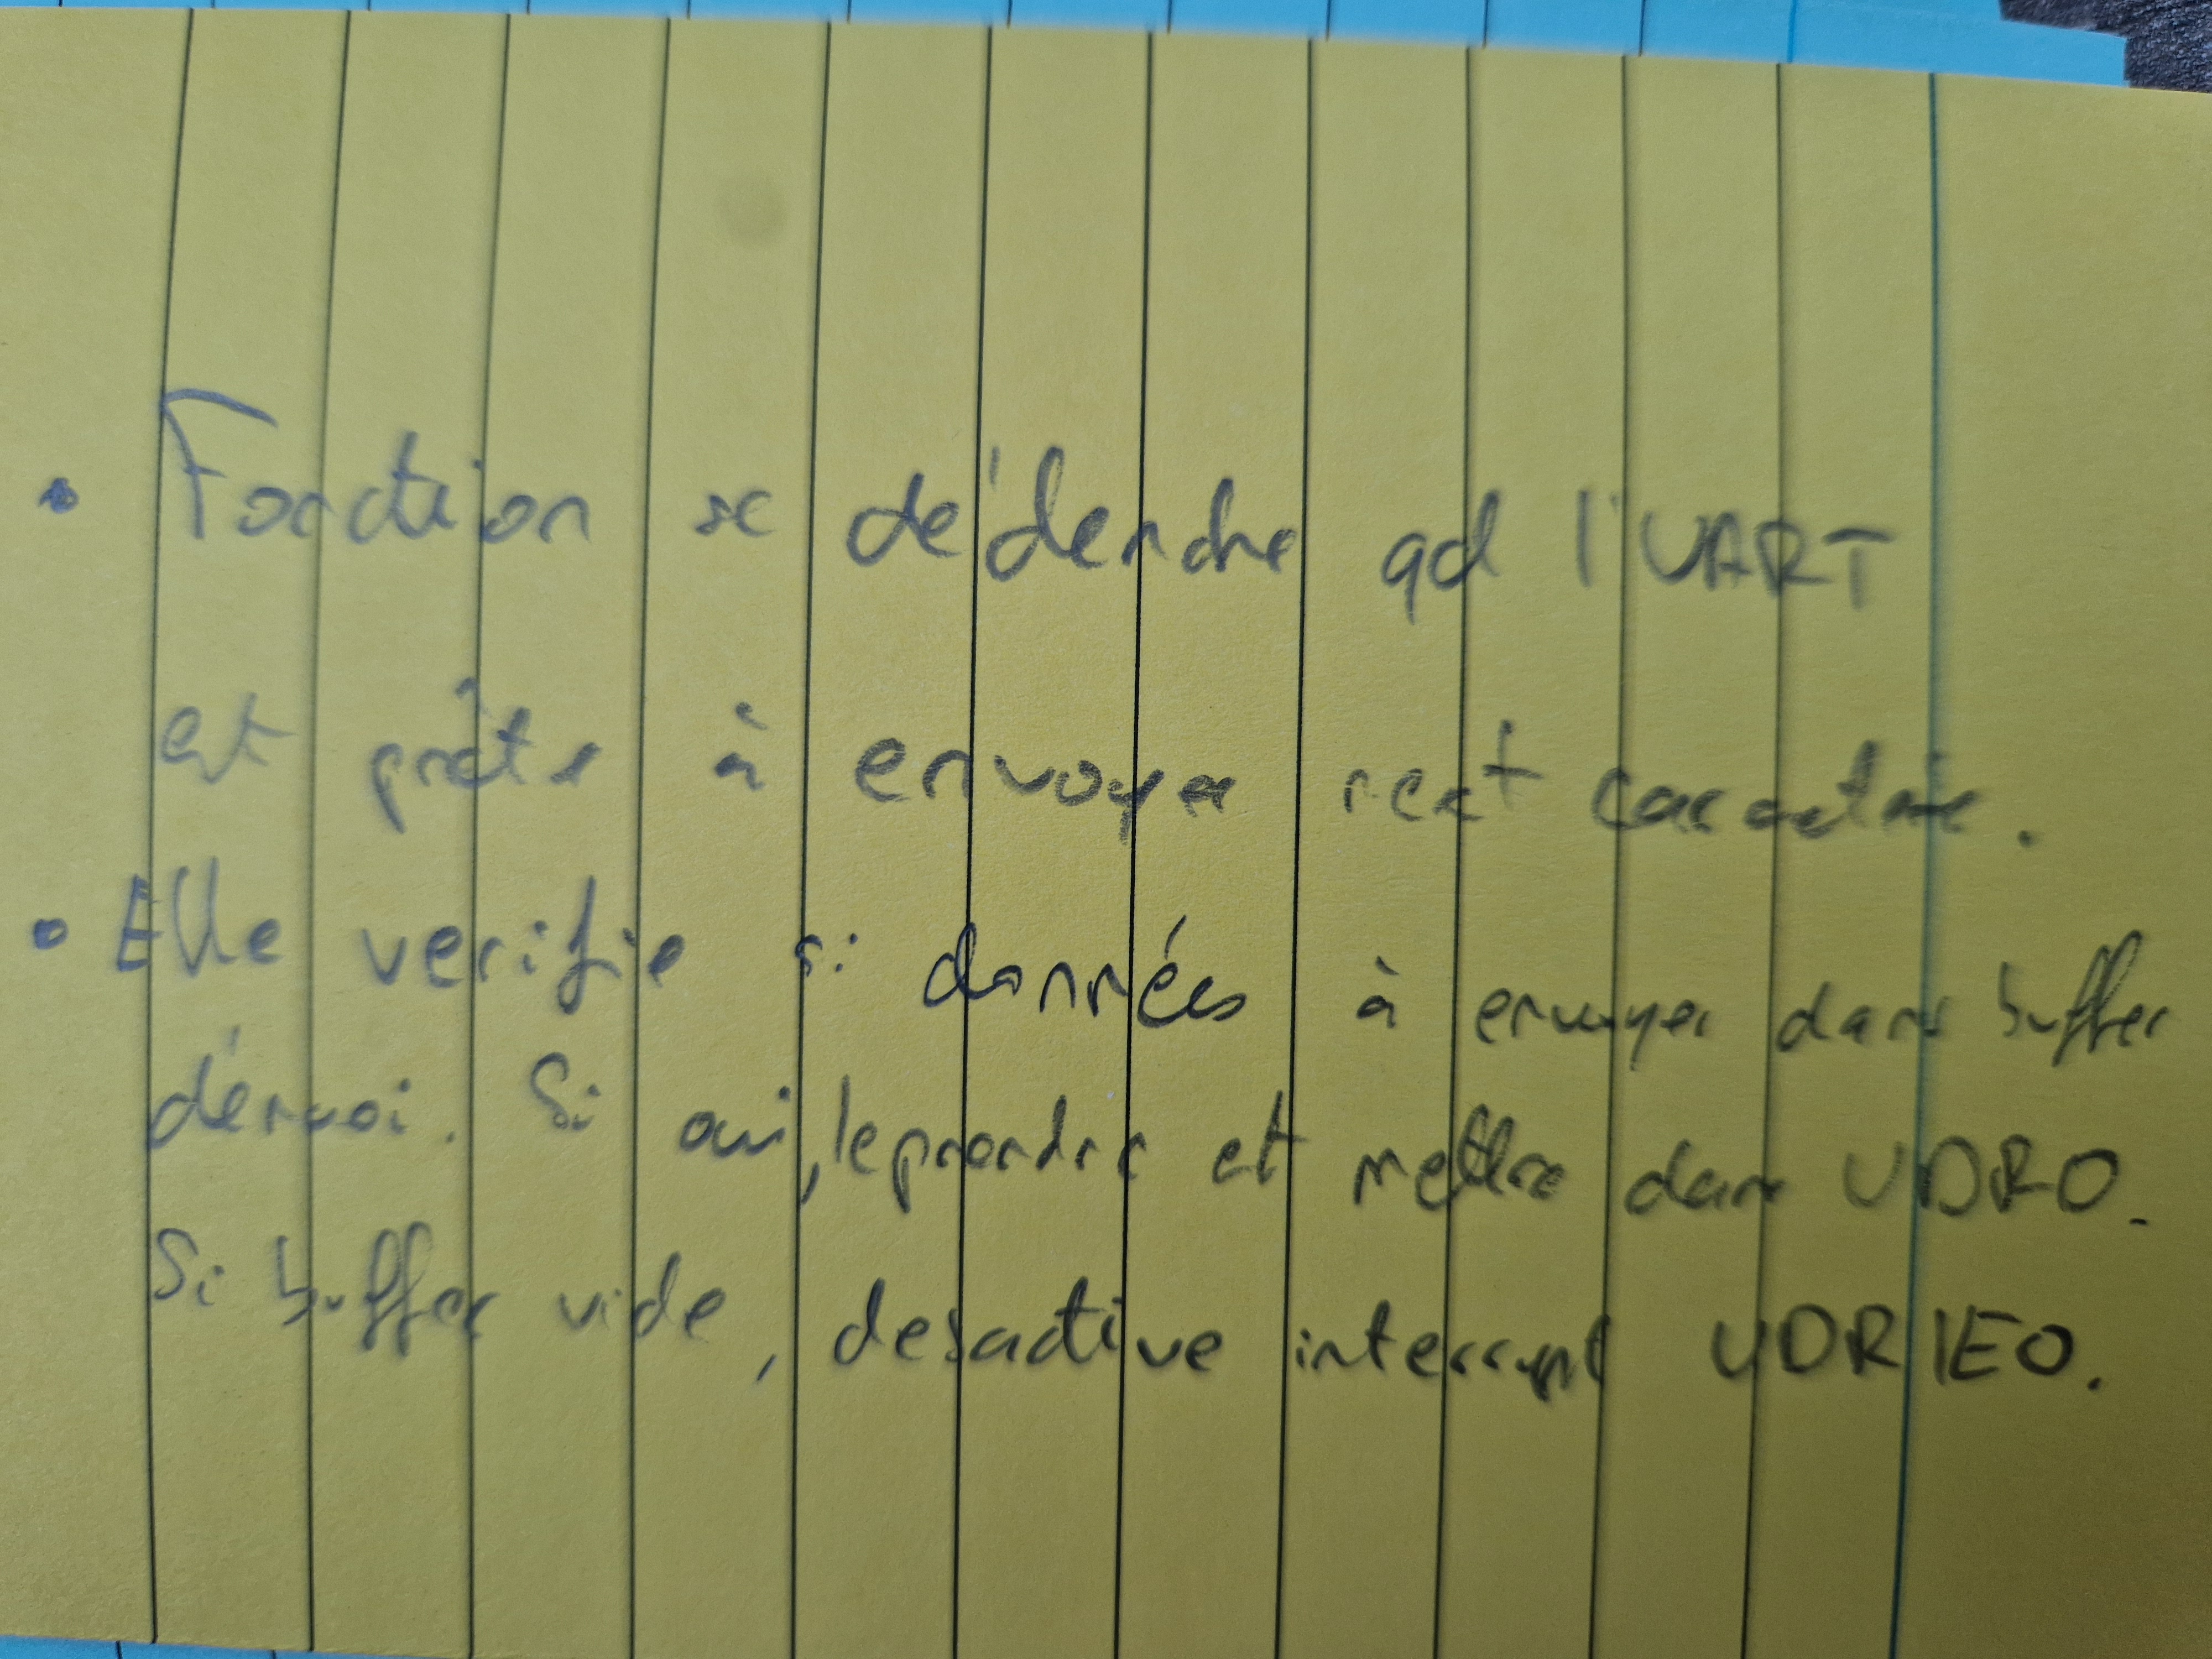 • Fonction se déclenche qd l'UART
est prête à envoyer next caractère.
• Elle verifie si données à envoyer dans buffer
d'envoi. Si oui, le prendre et mettre dans UDR0.
Si buffer vide, desactive interrupt UDRIE0.